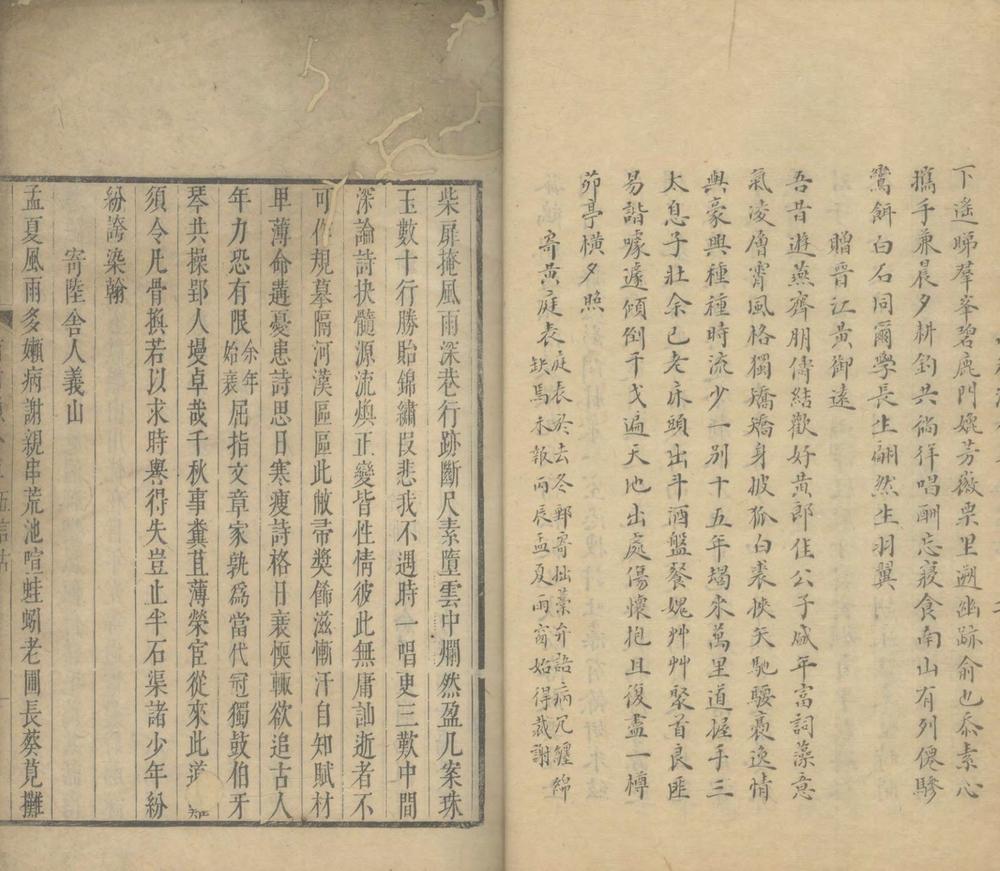 下遙睇羣峯碧鹿門婉芳薇栗里遡幽跡俞也忝素心
攜手兼晨夕耕釣共徜徉唱酬忘寢食南山有列僊驂
鸞餌白石同爾學長生翩然生羽翼
贈晉江黃御遠
吾昔遊燕齊朋儔結歡好黃郎佳公子盛年富詞藻意
氣凌層霄風格獨矯矯身披狐白裘挾矢馳騕褭逸情
與豪興種種時流少一別十五年朅來萬里道握手三
太息子壯余已老床頭出斗酒盤餐媿艸艸聚首良匪
易諧噱遽傾倒干戈遍天地出處傷懷抱且復盡一樽
茆亭橫夕照
寄黃庭表庭表於去冬郵寄拙藁弁語病冗纏綿
缺焉未報丙辰孟夏雨窗始得裁謝
柴扉掩風雨深巷行跡斷尺素墮雲中爛然盈几案珠
玉數十行勝貽錦繡段悲我不遇時一唱更三歎中間
深論詩抉髓源流煥正變皆性情彼此無庸訕逝者不
可作規摹隔河漢區區此敝帚獎飾滋慚汗自知賦材
卑薄命遘憂患詩思日寒瘦詩格日衰愞輒欲追古人
年力恐有限余年始衰屈指文章家孰為當代冠獨鼓伯牙
琴共操郢人墁卓哉千秋事糞苴薄榮宦從來此道
須令凡骨換若以求時譽得失豈止半石渠諸少年紛
紛誇染翰
寄陸舍人義山
孟夏風雨多嬾病謝親串荒池喧蛙蚓老圃長蔡莧攤